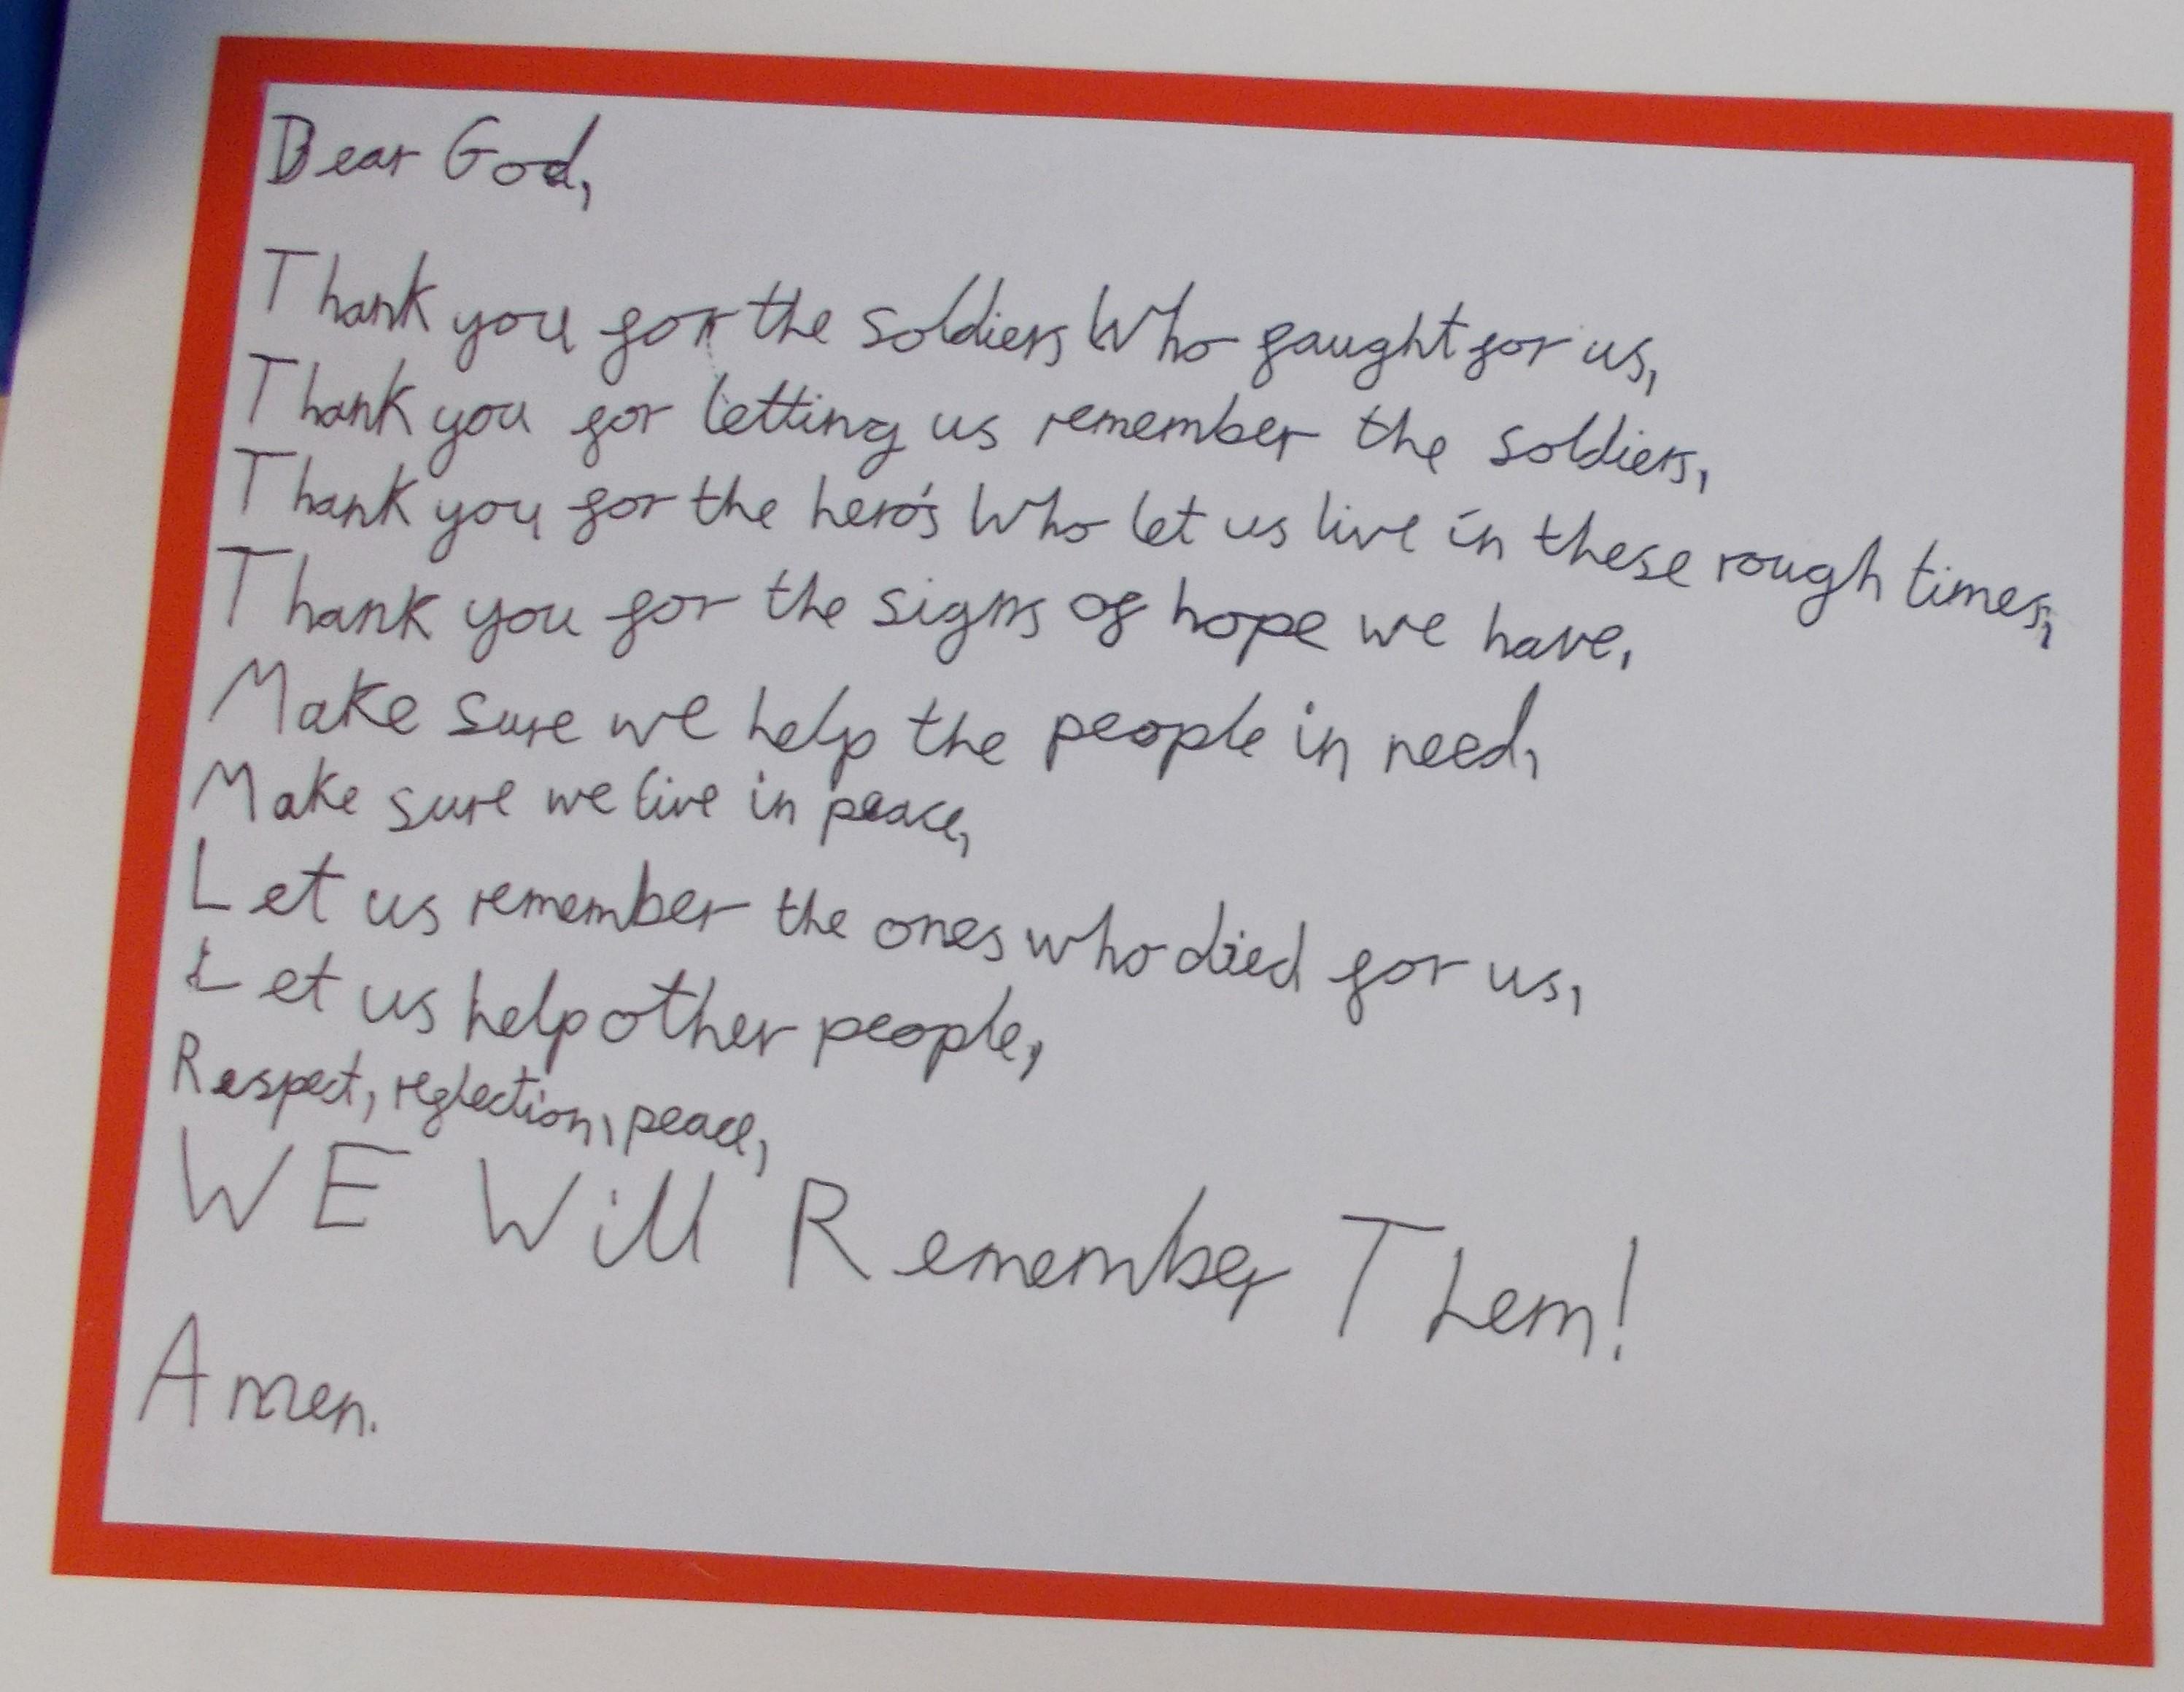 Dear God,
Thank you for the soldiers Who faught for us,
Thank you for letting us remember the soldiers,
Thank you for the hero's Who let us live in these rough times,
Thank you for the signs of hope we have,
Make sure we help the people in need,
Make sure we live in peace,
Let us remember the ones who died for us,
Let us help other people,
Respect, reflection, peace,
WE Will Remember Them!
Amen.